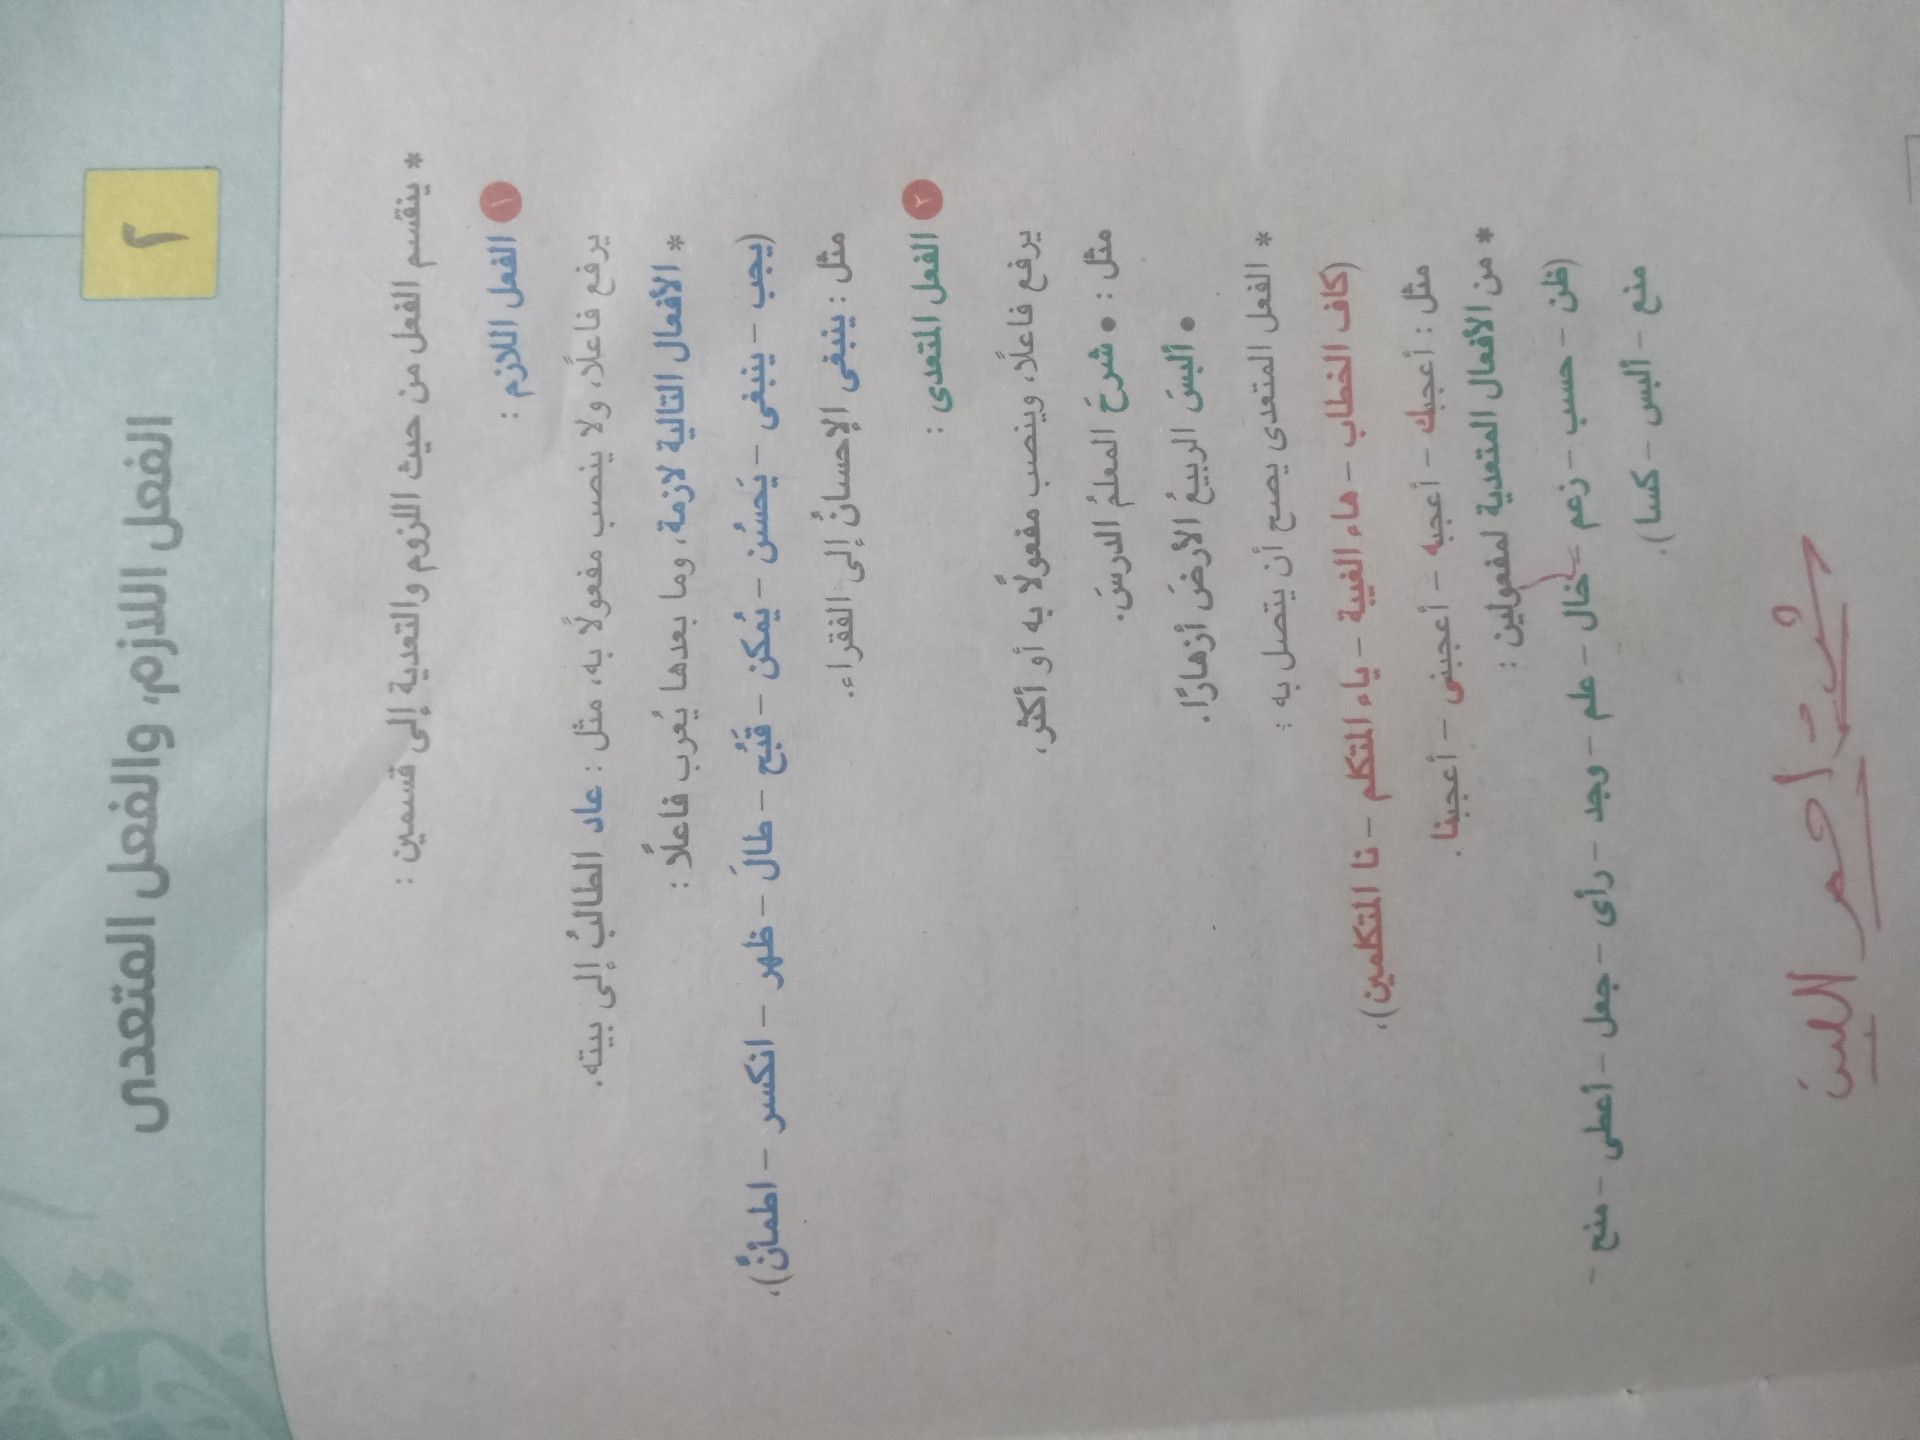 ٢
الفعل اللازم، والفعل المتعدى
* ينقسم الفعل من حيث اللزوم والتعدية إلى قسمين :
١ الفعل اللازم :
يرفع فاعلًا، ولا ينصب مفعولًا به، مثل : عاد الطالبُ إلى بيته.
* الأفعال التالية لازمة، وما بعدها يُعرب فاعلًا :
(يجب - ينبغى - يَحسُن - يُمكن - قَبُح - طالَ - ظهر - انكسر - اطمأنَّ)،
مثل : ينبغى الإحسانُ إلى الفقراء.
٢ الفعل المتعدى :
يرفع فاعلًا، وينصب مفعولًا به أو أكثر،
مثل : • شرحَ المعلمُ الدرسَ.
• ألبسَ الربيعُ الأرضَ أزهارًا.
* الفعل المتعدى يصح أن يتصل به :
(كاف الخطاب - هاء الغيبة - ياء المتكلم - نا المتكلمين)،
مثل : أعجبك - أعجبه - أعجبنى - أعجبنا.
* من الأفعال المتعدية لمفعولين :
(ظن - حسب - زعم - خال - علم - وجد - رأى - جعل - أعطى - منح -
منع - ألبس - كسا).